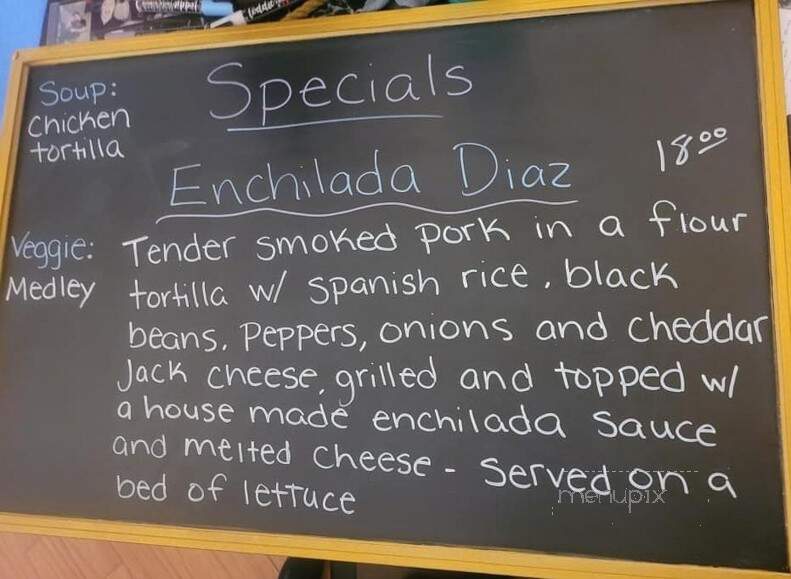 Specials
Soup:
Chicken
tortilla
18.00
Enchilada Diaz
Veggie:
Medley
Tender smoked pork in a flour
tortilla w/ spanish rice, black
beans, peppers, onions and cheddar
Jack cheese, grilled and topped w/
a house made enchilada sauce
and melted cheese - Served on a
bed of lettuce
menupix